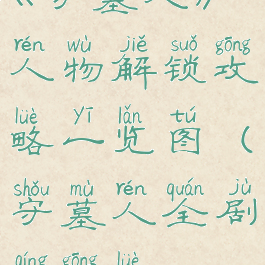 《守墓人》
rén wù jiě suǒ gōng
人物解锁攻
lüè yī lǎn tú
略一览图（
shǒu mù rén quán jù
守墓人全剧
qíng gōng lüè